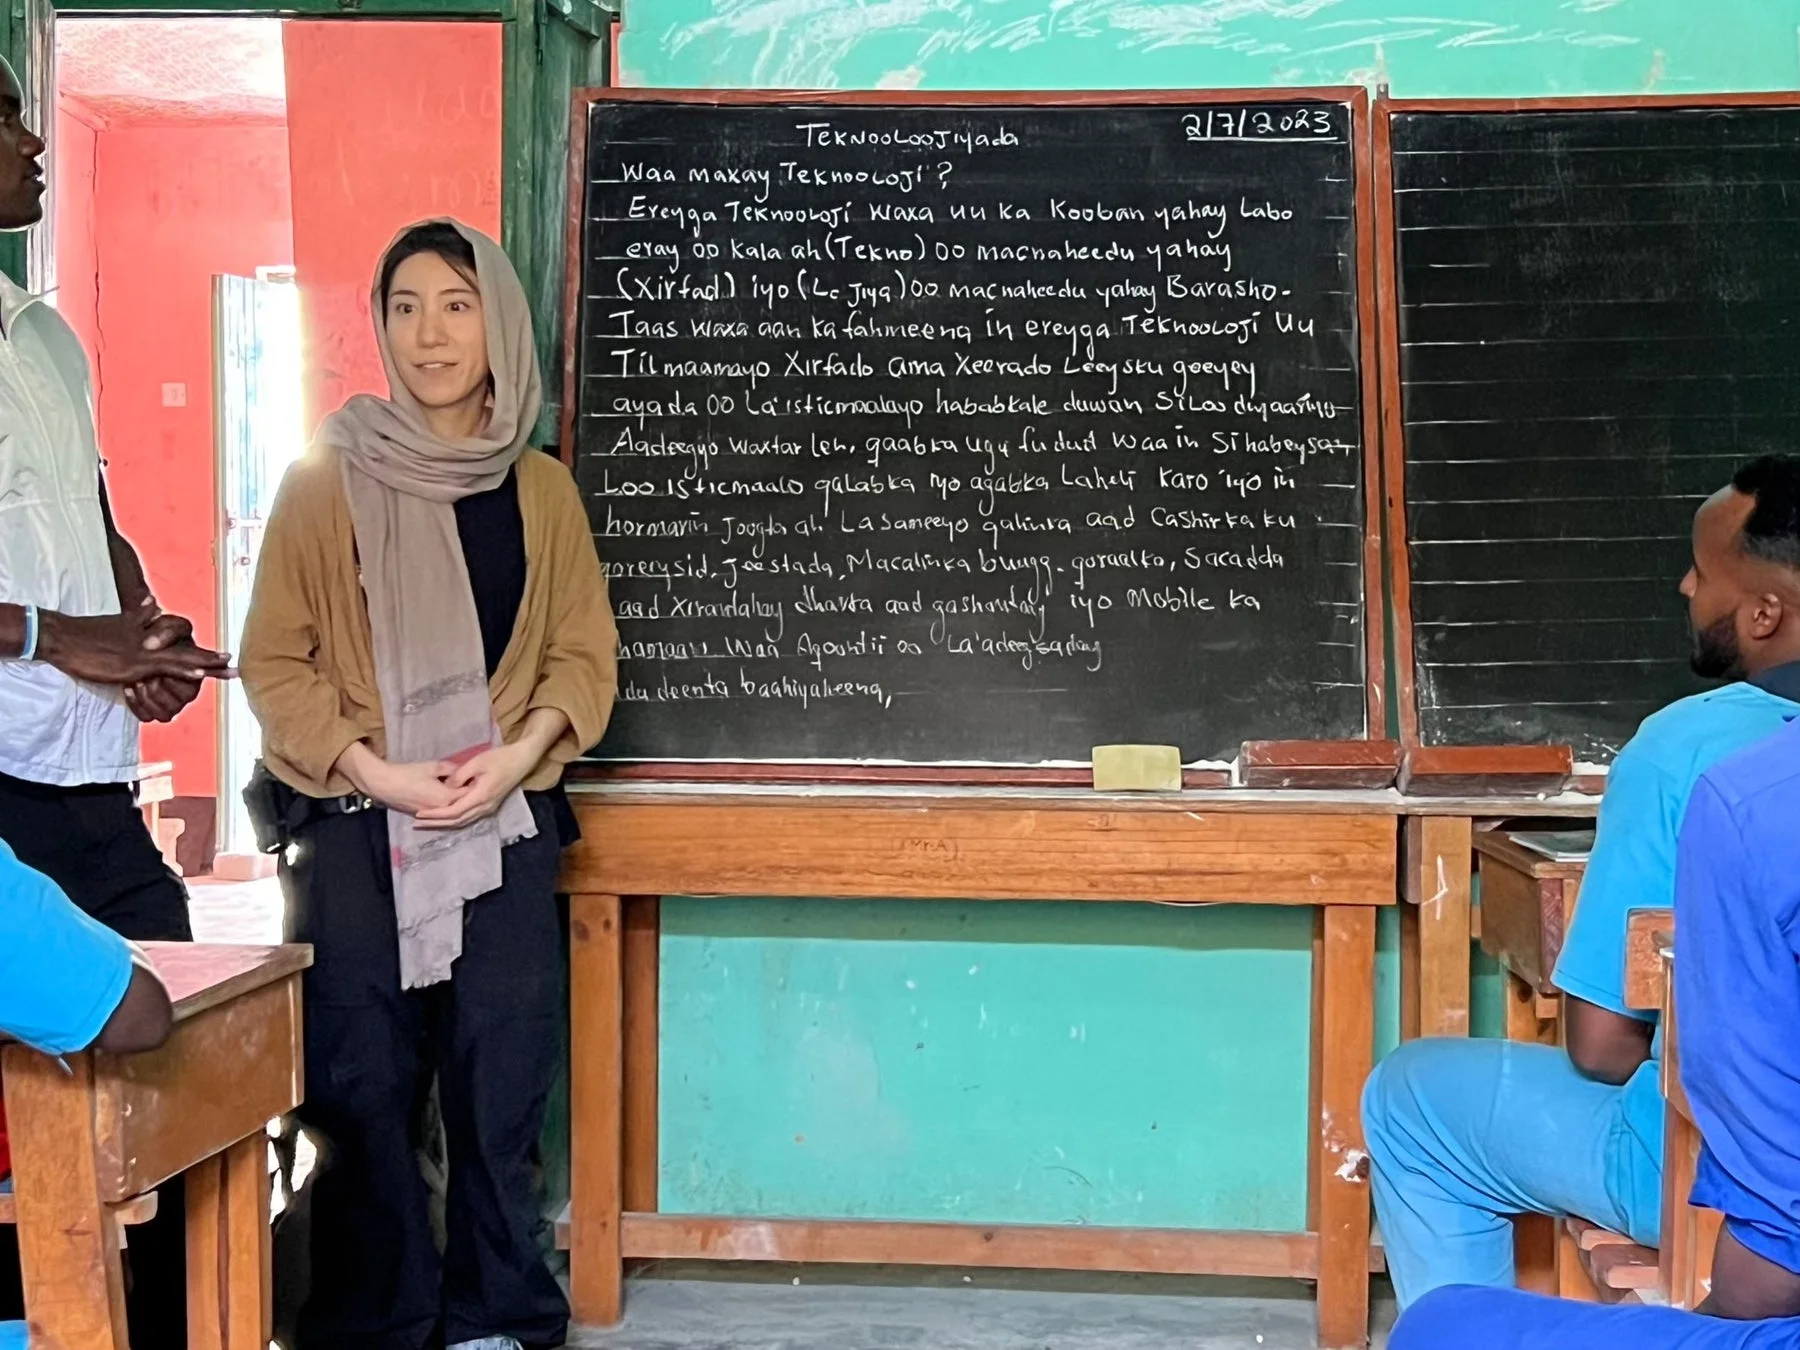 Teknooloojiyada
2/7/2023
Waa maxay Teknooloji?
Ereyga Teknooloji waxa uu ka kooban yahay labo
eray oo kala ah (Tekno) oo macnaheedu yahay
(Xirfad) iyo (Lojiya) oo macnaheedu yahay Barasho.
Taas waxa aan ka fahmeena in ereyga Teknooloji uu
Tilmaamayo Xirfado ama Xeerado Leeysku geeyey
ayada oo la'isticmaalayo hababkale duwan si Loo diyaariyo
Aadeegyo waxtar leh, qaabka ugu fudud waa in
Loo isticmaalo qalabka iyo agabka Laheli karo iyo in
hormarin joogta ah. La sameeyo qalinka aad Cashirka ku
Jeestada, Macalinka buugg. qoraalka, Sacadda
aad Xirantahay dharka aad gashantay iyo Mobile ka
Waa oo La'adeegsaday
baahiyaheena,